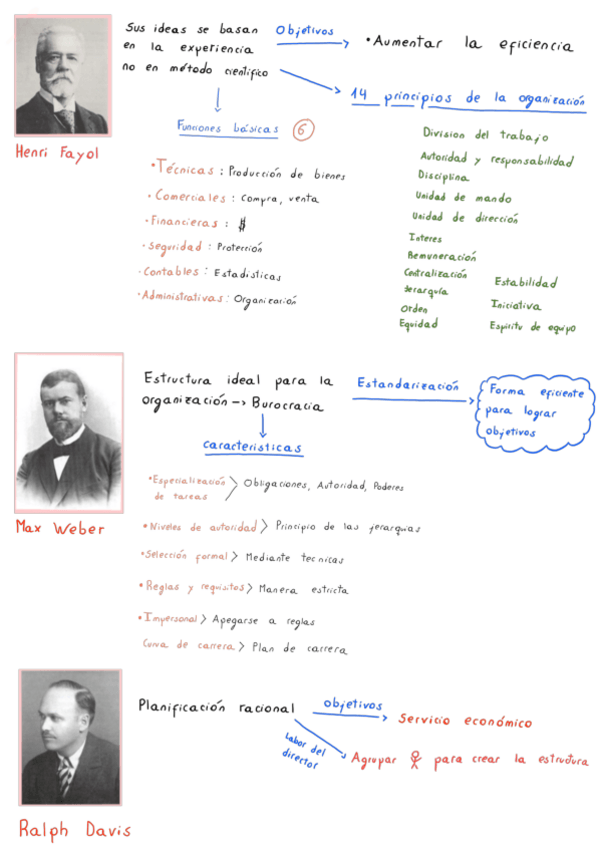 Sus ideas se basan
en la experiencia
no en método científico
Objetivos
• Aumentar la eficiencia
14 principios de la organización
Henri Fayol
Funciones básicas 6
• Técnicas : Producción de bienes
• Comerciales : Compra, venta
• Financieras : $
• Seguridad : Protección
• Contables : Estadisticas
• Administrativas : Organización
Division del trabajo
Autoridad y responsabilidad
Disciplina
Unidad de mando
Unidad de dirección
Interes
Remuneración
Centralización
Jerarquía
Orden
Equidad
Estabilidad
Iniciativa
Espiritu de equipo
Estructura ideal para la
organización → Burocracia
Estandarización
Forma eficiente
para lograr
objetivos
Max Weber
Caracteristicas
• Especialización
de tareas > Obligaciones, Autoridad, Poderes
• Niveles de autoridad > Principio de las jerarquias
• Selección formal > Mediante tecnicas
• Reglas y requisitos > Manera estricta
• Impersonal > Apegarse a reglas
Curva de carrera > Plan de carrera
Planificación racional
objetivos
Servicio económico
Labor del
director
Agrupar para crear la estructura
Ralph Davis